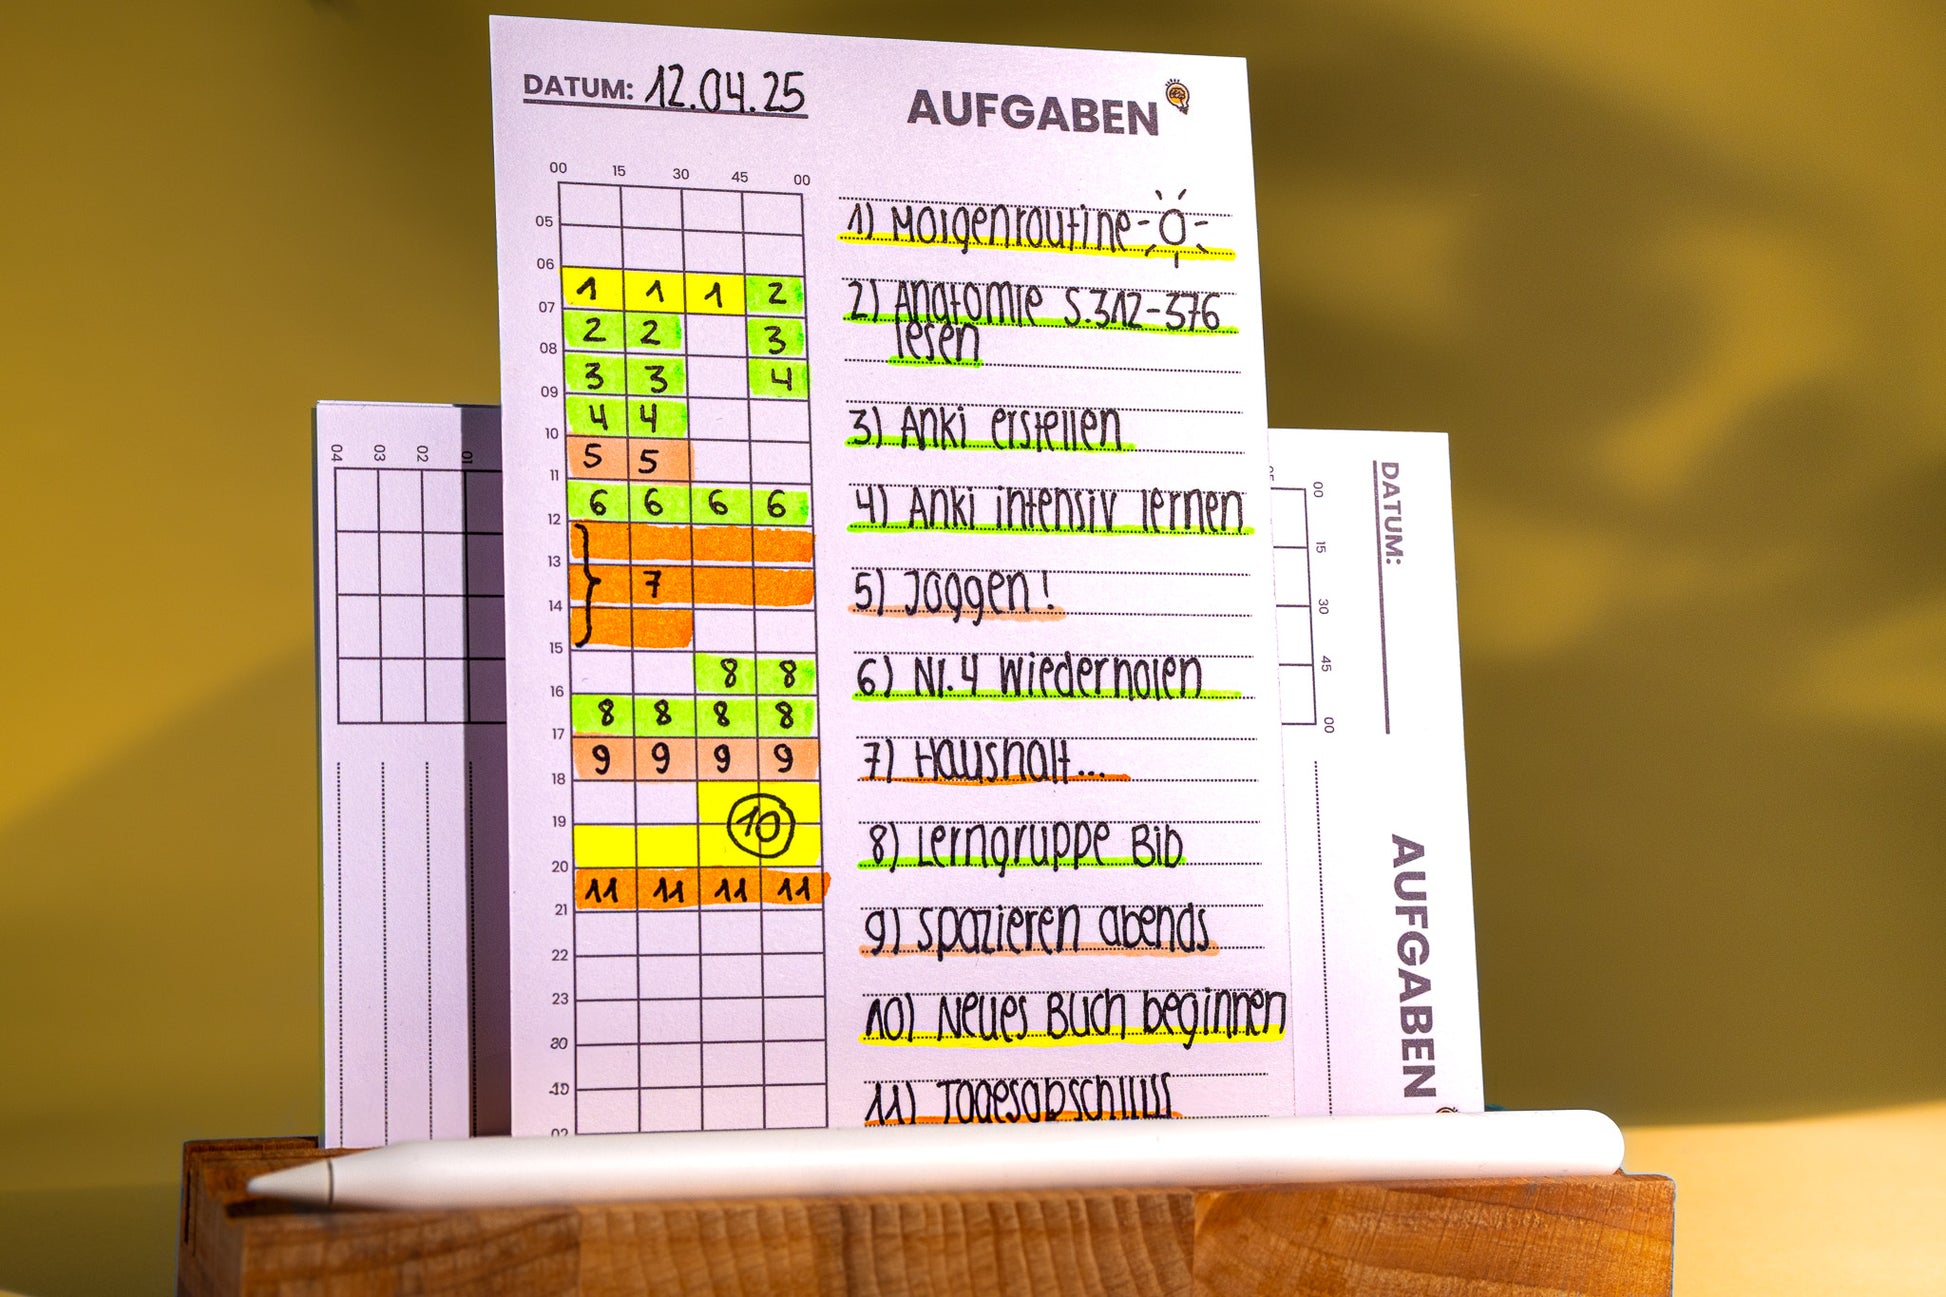 DATUM: 12.04.25
AUFGABEN
00 15 30 45 00
05
06
1 1 1 2
07
2 2 3
08
3 3 4
09
4 4
10
5 5
11
6 6 6 6
12
13
7
14
15
8 8
16
8 8 8 8
17
9 9 9 9
18
10
19
20
11 11 11 11
21
22
23
00
01
02
1) Morgenroutine
2) Anatomie S.312-376
lesen
3) Anki erstellen
4) Anki intensiv lernen
5) Joggen!
6) Nr.4 Wiederholen
7) Haushalt...
8) Lerngruppe Bib
9) Spazieren abends
10) Neues Buch beginnen
11) Tagesabschluss
04 03 02 01
DATUM:
00 15 30 45 00
AUFGABEN